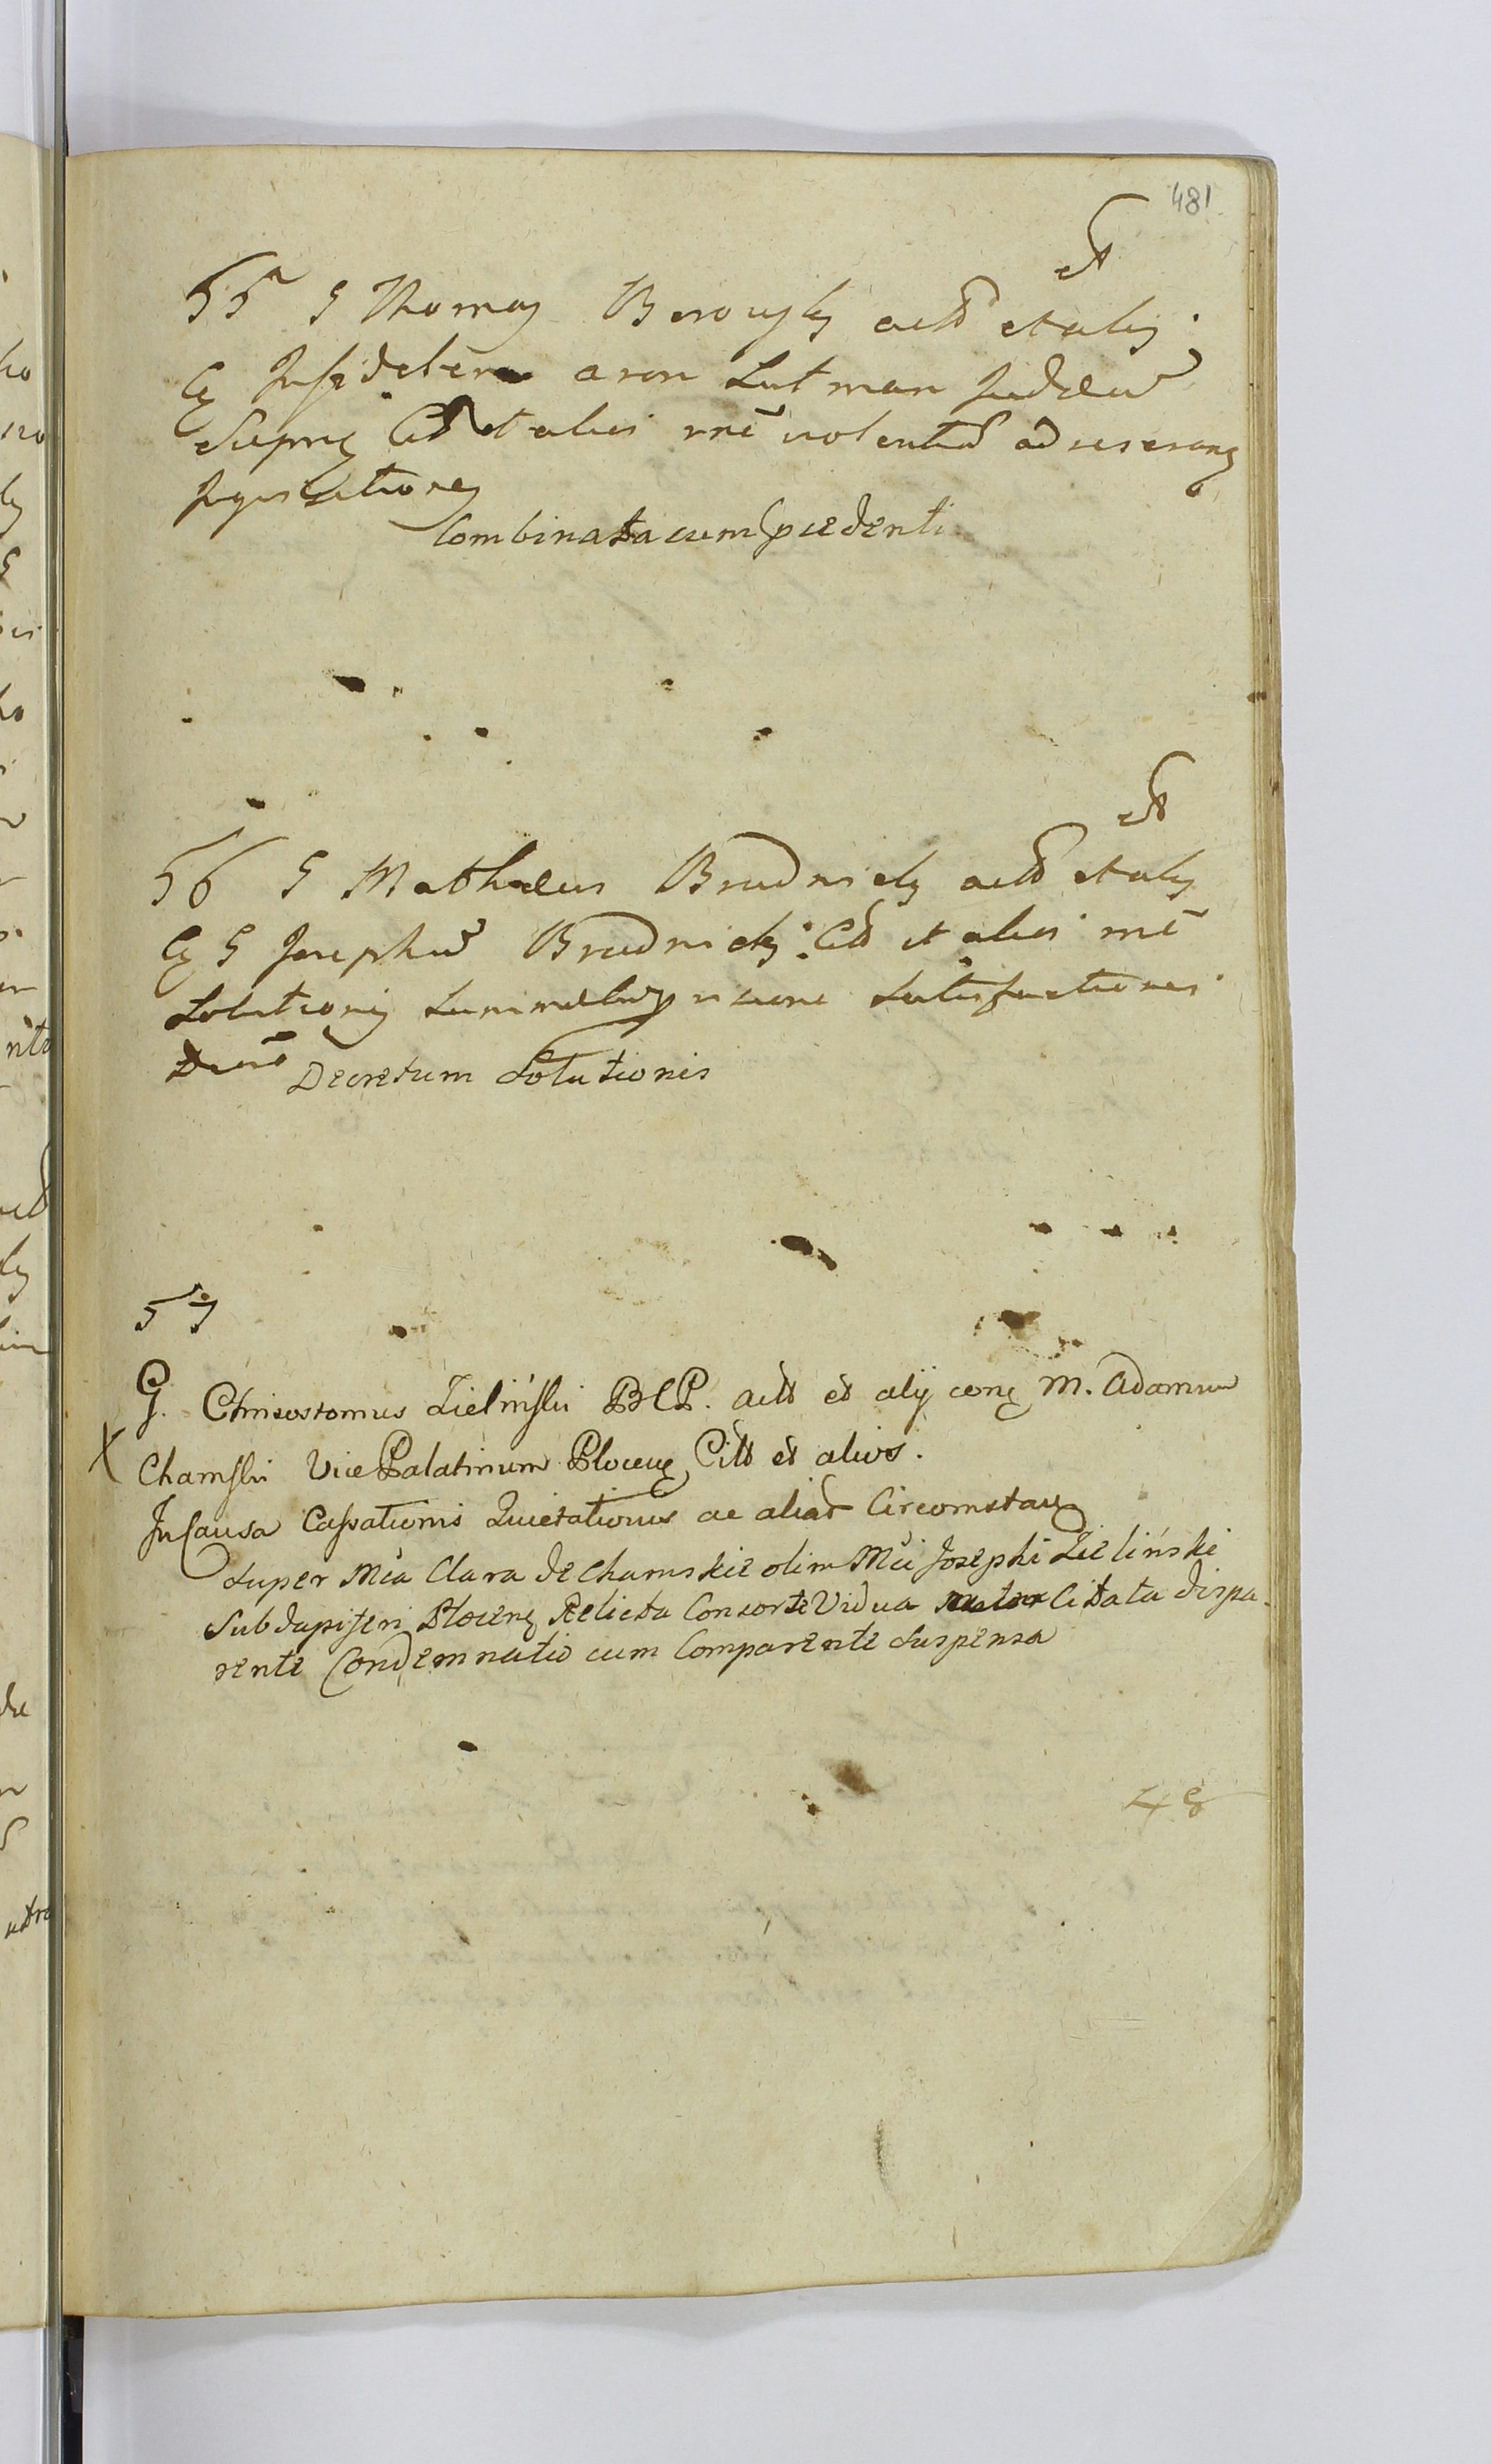 481
55 G Thomas Berowsky actt et alij
Cq Infidelem aron Lutman Judaeu
Citt et alios rne volentia adversans
Inquisitiones
Combinata cum precedenti
56 G Mathaeus Brudnicky actt et alij
Cq G Josephu Brudnicky Citt et alios rne
Solutionis Satisfactiones
Decretum Solutionis
57
G. Chrisostomus Zieliński BCP. actt et alij conq M. Adamum
X Chamski Vice Palatinum Plocens Citt et alios.
In Causa Cassationis Quietationis ac aliar Circomstan
Super Mca Clara de Chamskie olim Mci Josephi Zieliński
Subdapiferi Plocens Relicta Consorte Vidua Citata dispa-
rente Condemnatio cum Comparente Suspensa
48